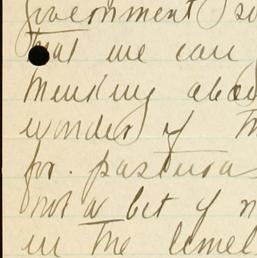 government
that we can
thinking abou
wonder if th
for. pasturas
not a bit of n
in the limel